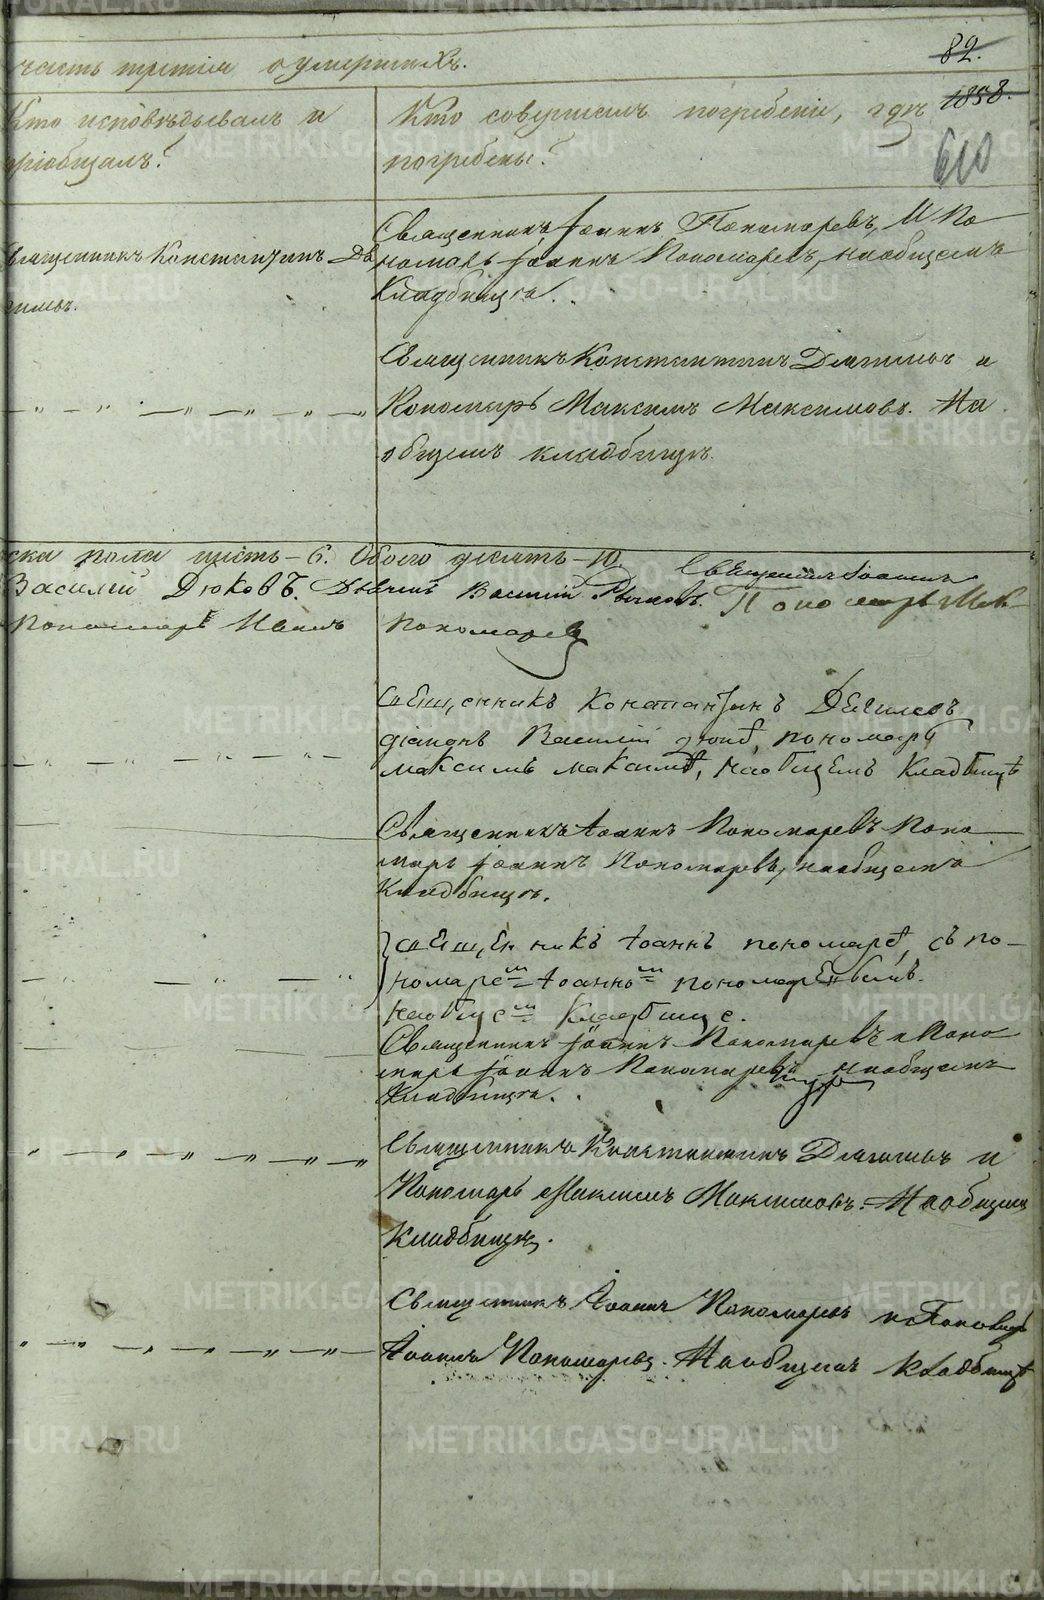 часть третія о умершихъ.
82.
1858.
610
Кто исповѣдывалъ и
пріобщалъ?
Кто совершалъ погребеніе, гдѣ
погребены?
Священникъ Константинъ
Священникъ Іоаннъ Пономаревъ, И По
номарь Іоаннъ Пономаревъ, наобщемъ
Кладбищѣ.
Священникъ Константинъ и
Пономарь Максимъ Максимовъ. На
общемъ кладбищѣ.
ска пола шесть - 6. Обоего десять - 10.
Василій Дюковъ. Василій Священникъ Іоаннъ
Пономарь Иванъ Пономаревъ
Священникъ Константинъ
діаконъ Василій пономарь
максимъ наобщемъ Кладбищѣ
Священникъ Іоаннъ Пономаревъ Поно
марь Іоаннъ Пономаревъ, наобщемъ
Кладбищѣ.
священникъ Іоаннъ съ по-
номаремъ Іоанномъ пономаревымъ.
наобщемъ Кладбище.
Священникъ Іоаннъ Пономаревъ и Поно
марь Іоаннъ Пономаревъ наобщемъ
Кладбищѣ.
Священникъ Константинъ и
Пономарь Максимъ Максимовъ. Наобщемъ
Кладбищѣ.
Священникъ Іоаннъ Пономаревъ и
Іоаннъ Пономаревъ. Наобщемъ Кладбищѣ
METRIKI.GASO-URAL.RU